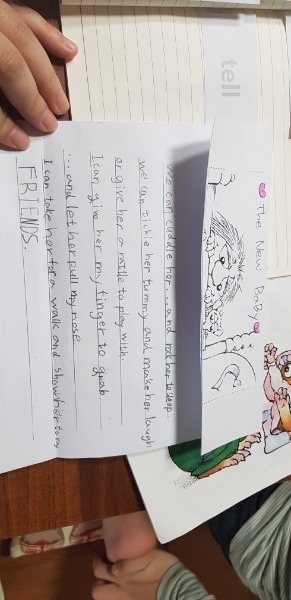 tell
The New Baby
We can cuddle her... and rock her to sleep
we can tickle her tummy and make her laugh
or give her a rattle to play with.
I can give her my finger to grab
...and let her pull my nose
I can take her for a walk and show her to my
FRIENDS.